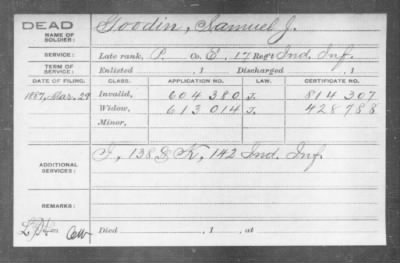 DEAD
NAME OF SOLDIER: Goodin, Samuel J.
SERVICE: Late rank, P. Co. E, 17 Reg't Ind. Inf.
TERM OF SERVICE: Enlisted , 1 Discharged , 1
DATE OF FILING. CLASS. APPLICATION NO. LAW. CERTIFICATE NO.
1887, Mar. 29 Invalid, 604 380 J. 814 307
Widow, 613 014 J. 428 788
Minor,
ADDITIONAL SERVICES: F, 138 & K, 142 Ind. Inf.
REMARKS:
Died , 1 , at